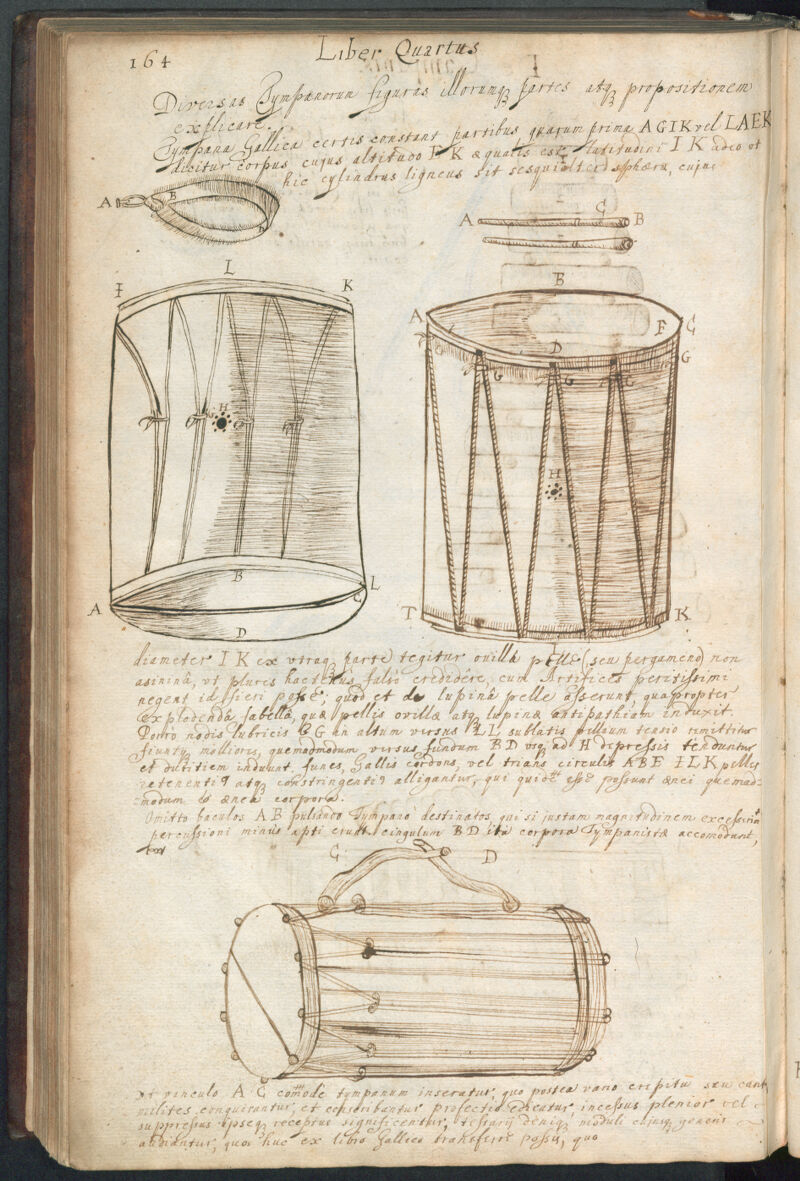 164
Liber Quartus
Diversas Tympanorum figuras illorumq partes atq propositionem
explicare.
Tympana Gallica certis constant partibus quarum prima AGIK vel LAEK
dicitur corpus cujus altitudo F K æqualis est latitudini I K adeo ut
hic cylindrus ligneus sit sesquialter sphæræ, cujus
A B
A G B
I L K
A B F G
D G G G
H H
A B L
D
T K
diameter I K ex utraq parte tegitur ovilla pelle (seu pergameno) non
asininâ, ut plures hactenus falsò credidêre, cum Artifices peritissimi
negent id fieri posse; quod et de lupinâ pelle asserunt, quapropter
explodenda fabella, quæ pellis ovillæ atq lupinæ antipathiam induxit.
Porro nodis lubricis CG in altum versus LL sublatis pellium tensio remittitur
fiuntq molliores, quemadmodum versus fundum BD usq ad H depressis tenduntur
et duritiem induunt. funes, Gallis cordons, vel trians circulis ABE ILK pelles
retinentib9 atq constringentib9 alligantur, qui quidem esse possunt ænei quemad-
modum & ænea corpora.
Omitto baculos AB pulsando Tympano destinatos, qui si justam magnitudinem excesserint
percussioni minus apti erunt. cingulum BD ita corpora Tympanistæ accomodant,
G D
ut vinculo A C comode tympanum inseratur, quo postea vario crepitu seu cantu
milites conquirantur, et conscribantur profectio edicatur, incessus plenior vel
suppressus ipseq receptus significentur, tessarij deniq moduli cujusq generis
audiantur, quos huc ex libro Gallico transferre possis, quo